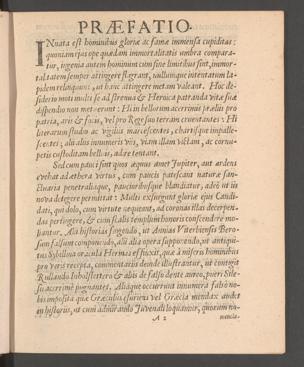 PRÆFATIO.
INnata est hominibus gloriæ ac famæ immensa cupiditas:
quoniam ejus ope quadam immortalitatis umbra compara-
tur, ingenia autem hominum cum sine limitibus sint, immor-
talitatem semper attingere flagrant, nullumque intentatum la-
pidem relinquunt, ut hanc attingere metam valeant. Hoc de-
siderio moti multi se ad strenua & Heroica patranda vitæ suæ
dispendio non
Hi in bellorum accerrimi prælii pro
patria, aris & focis, vel pro Rege suo terram cruentantes: Hi
literarum studio ac vigiliis marcescentes, chartisque impalle-
scentes; alii aliis nervis, viam illam victam, ac cornu-
petis custoditam bellus, adæ tentant.
Sed cum pauci sint quos æquus amet Jupiter, aut ardens
evehat ad æthera virtus, cum paucis patescant naturæ san-
ctuaria penetraliaque, paucioribusque blandiatur, adeò ut iis
nova detegere permittat: Multi exsurgunt gloriæ ejus Candi-
dati, qui dolo, cum virtute nequeant, ad coronas illas decerpen-
das pertingere, & cum scalis templum honoris conscendere mo-
liantur. Alii historias fingendo, ut Annius Viterbiensis Bero-
sum falsum componendo, alii alia opera supponendo, ut antiqui-
tus Sybillina oracula Hermes effinxit, quæ à miseris hominibus
pro veris recepta, commentariis deinde illustrantur, ut contigit
Rullando
& aliis de falso dente aureo, pueri Sile-
si accerrimè pugnantes. Aliaque occurrunt innumera falsò no-
bis imposita quæ Græculus esuriens vel Græcia mendax audet
in historiis, ut cum admirando Juvenali loquamur, quorum nu-
A 2
mencla-